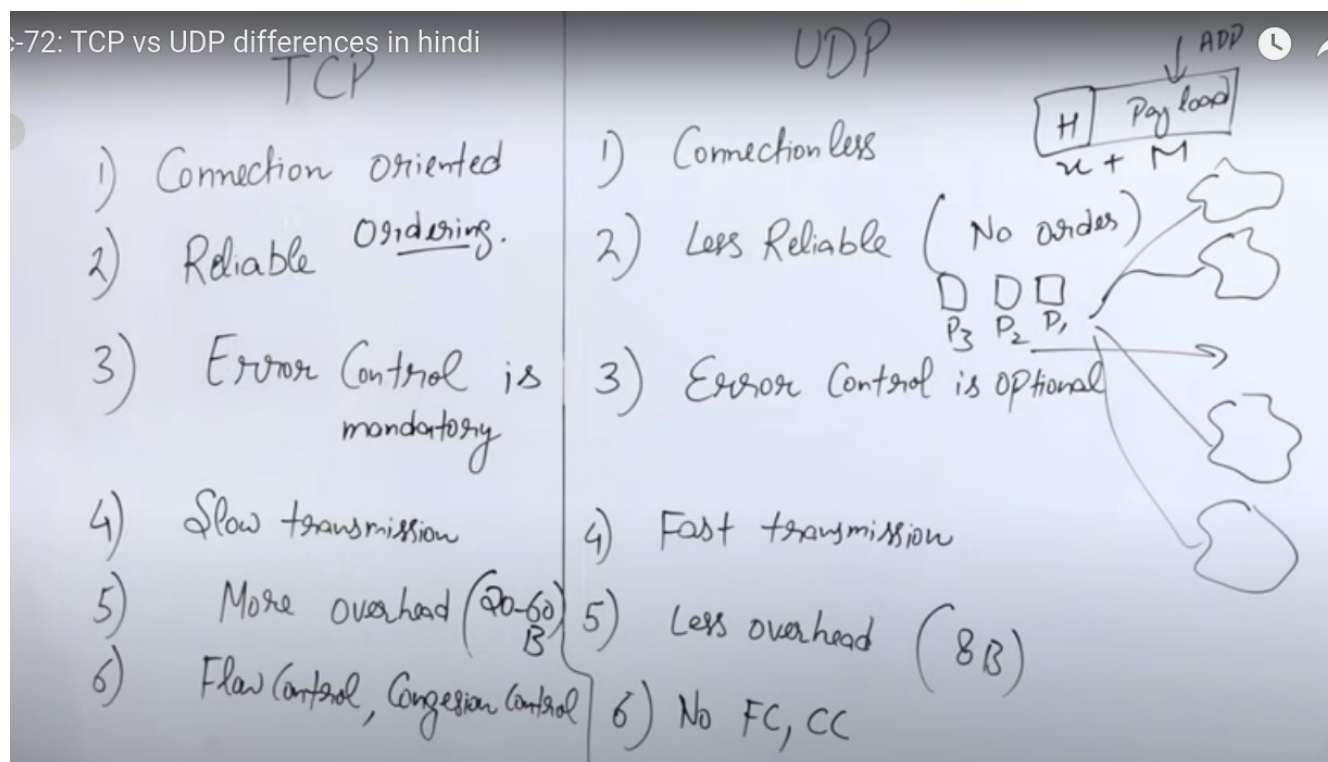 c-72: TCP vs UDP differences in hindi
TCP
1) Connection oriented
2) Reliable Ordering.
3) Error Control is
mandatory
4) Slow transmission
5) More overhead (20-60)
B
6) Flow Control, Congesion Control
UDP
1) Connectionless
2) Less Reliable (No order)
3) Error Control is optional
4) Fast transmission
5) Less overhead (8B)
6) No FC, CC
H Payload
x + M
P3 P2 P1